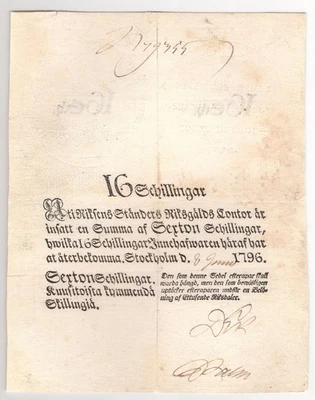 16 Schillingar
Uti Riksens Ständers Riksgälds Contor är
insatt en Summa af Sexton Schillingar,
hwilka 16 Schillingar Innehafwaren häraf har
at återbekomma. Stockholm d. 8 Junii 1796.
Sexton Schillingar.
Kuusitoista kymmendä
Skillingiä.
Den som denne Sedel efterapar skall
warda hängd, men den som bewisligen
uptäcker efteraparen undfår en Belö-
ning af Ettusende Riksdaler.